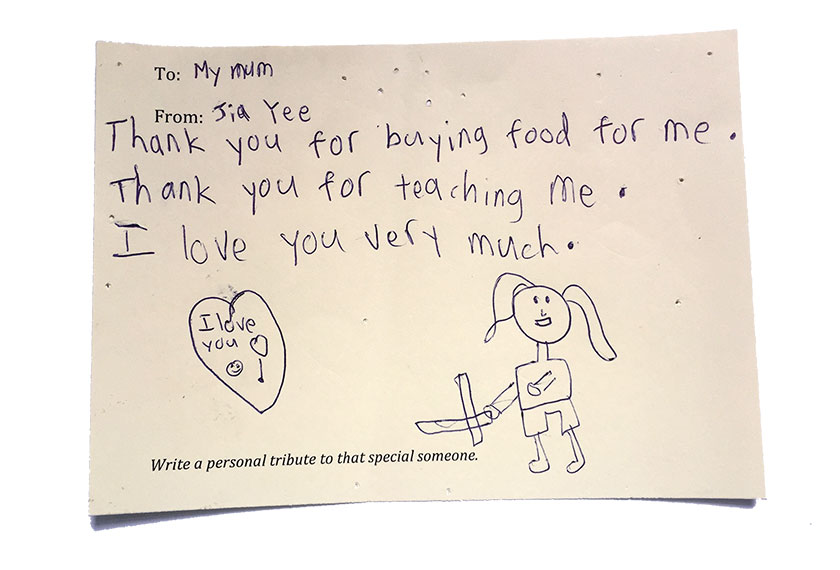 To: My mum
From: Jia Yee
Thank you for buying food for me.
Thank you for teaching me.
I love you very much.
I love
you
Write a personal tribute to that special someone.